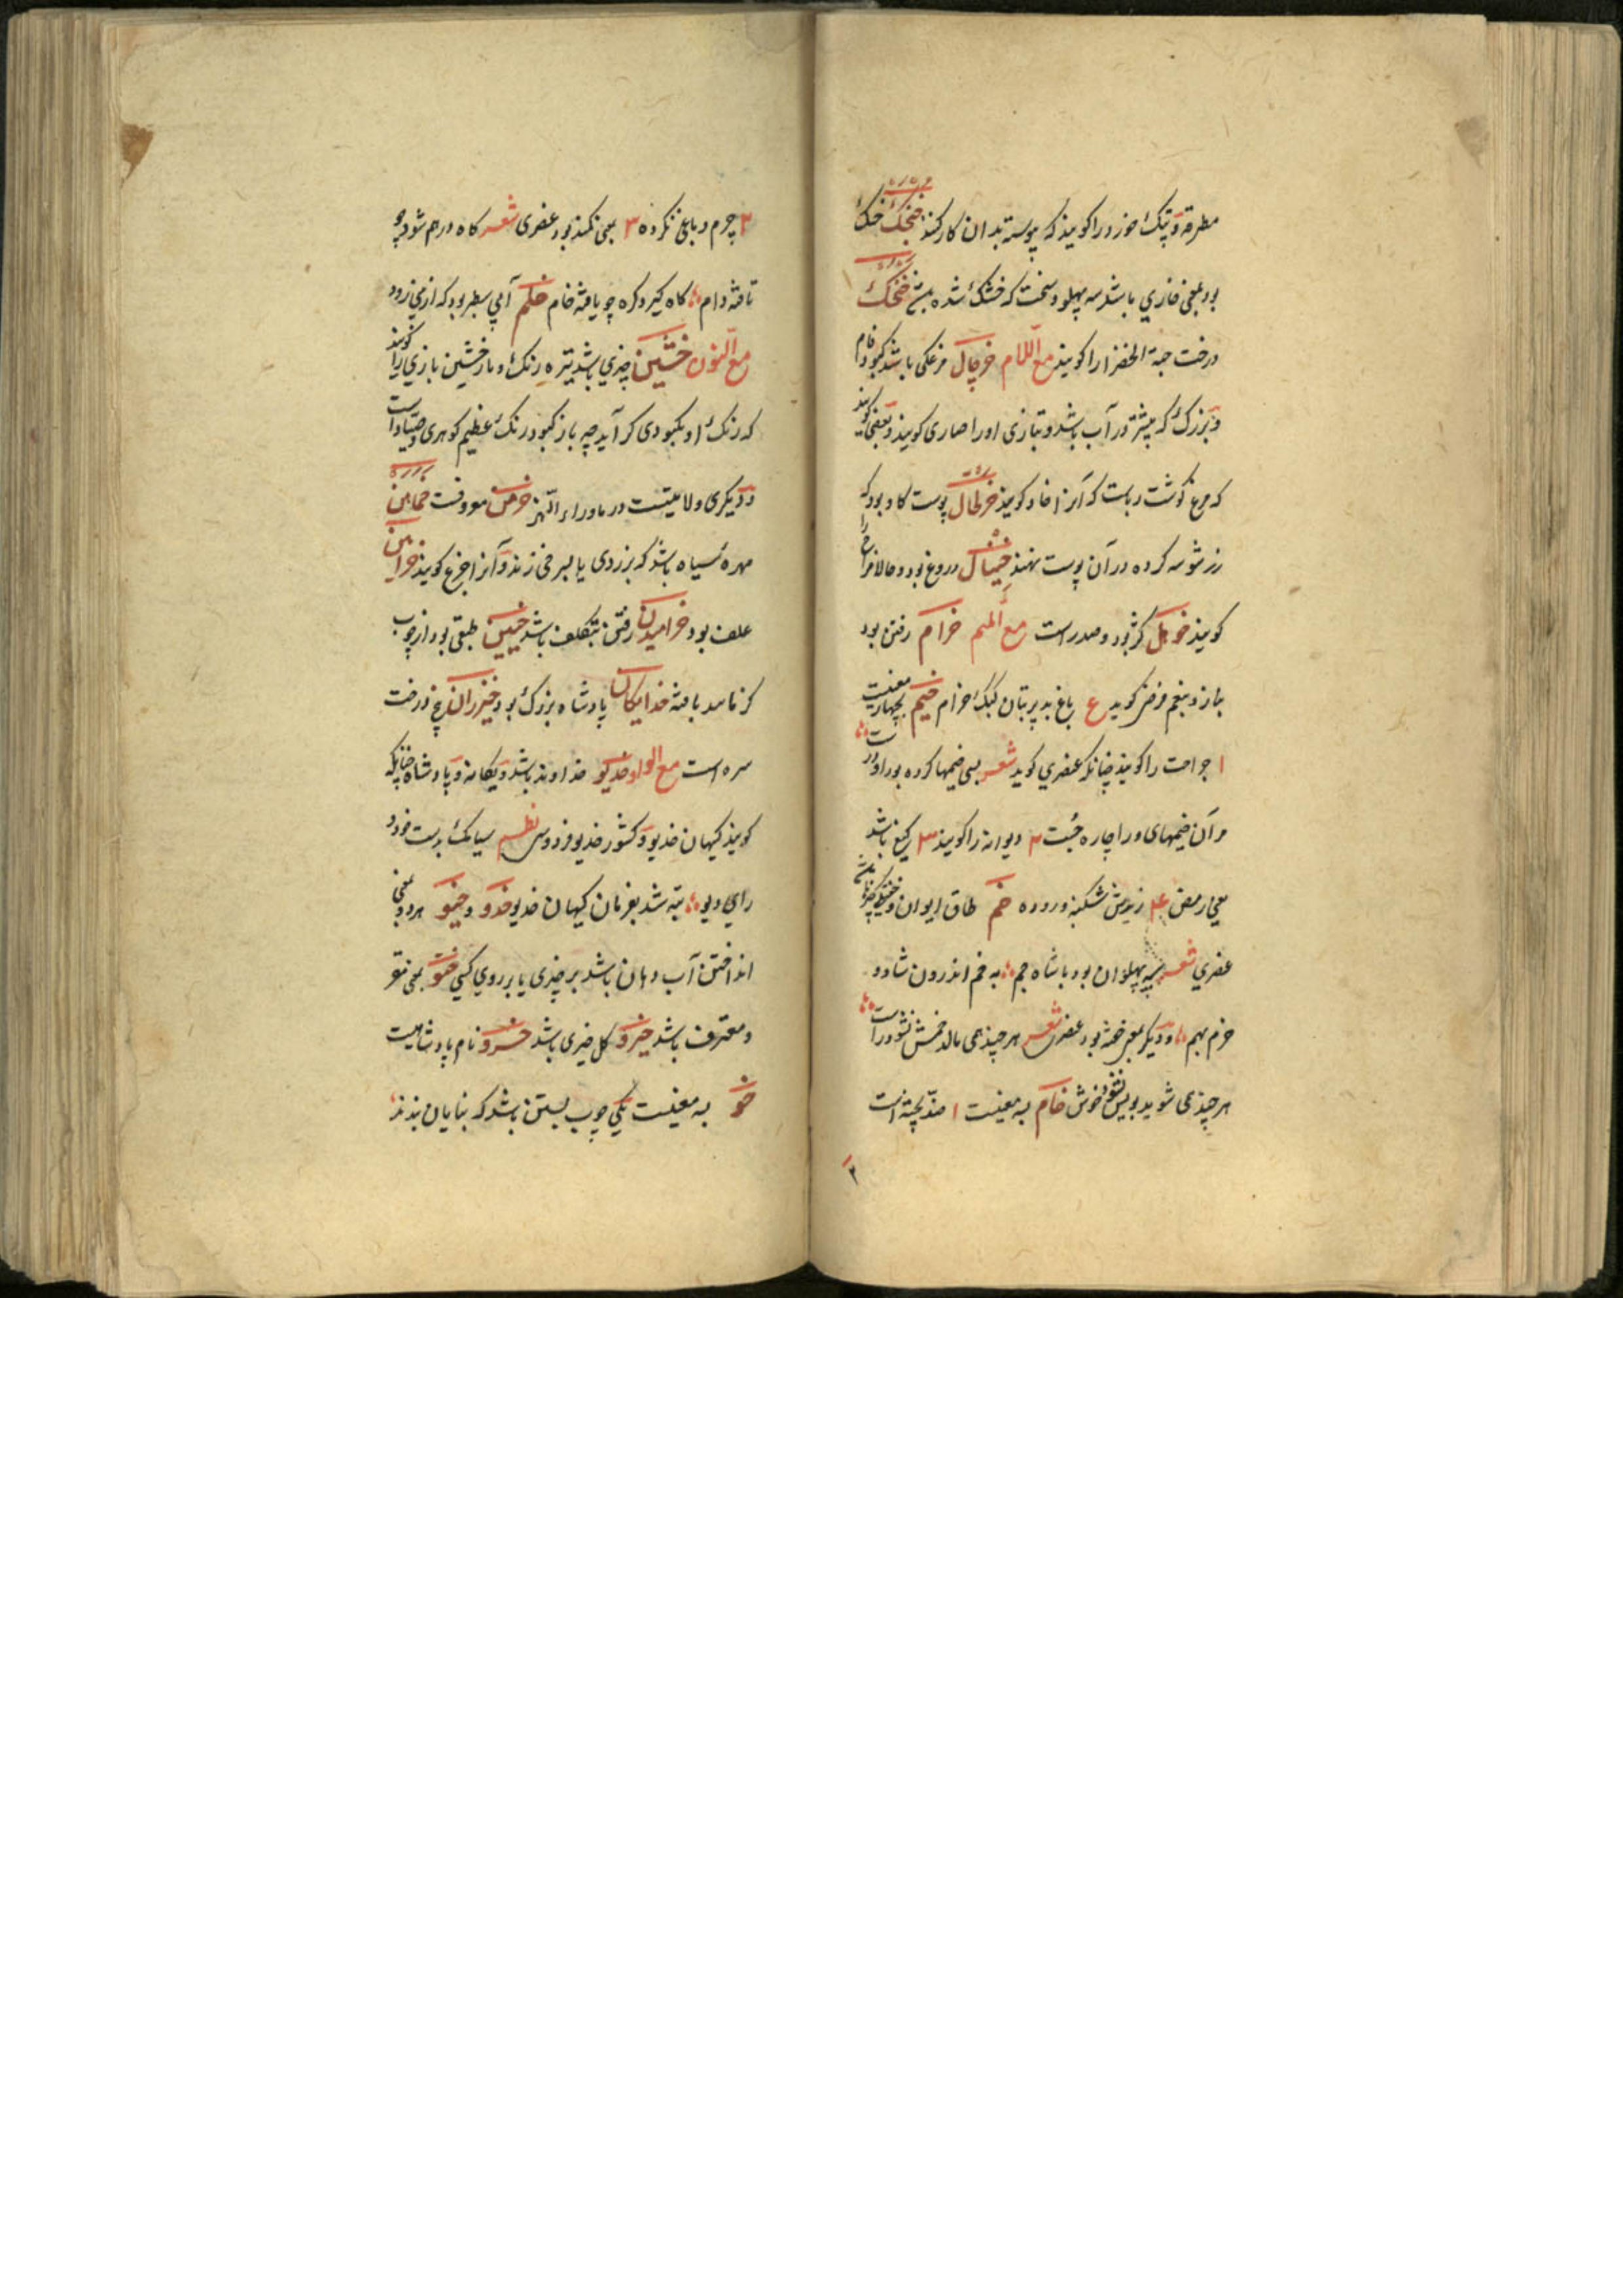 مطرقه و تپک خورد را کویند که پیوسته بدان کار کنند خنجک خسک
بود یعنی خاری باشد سه پهلو و سخت که خشک شده خنجک
درخت حبة الخضرا را کویند مع اللام خرچال مرغکی باشد کبودفام
و بزرک که بیشتر در آب باشد و بتازی او را حباری کویند و بعضی کویند
که مرغ کوشت رباست که آنرا خاد کویند خرطال پوست کاو بود که
زر شوشه کرده در آن پوست نهند خیتال دروغ بود و مزاح را
کویند خوهل کژ بود و ضد راست مع المیم خرام رفتن بود
بناز و بنغم فرخی کوید ع باغ بد پر بتان کبک خرام خیم بچهار معنیست
۱ جراحت را کویند چنانکه عنصری کوید شعر بسی خیمها کرده بود او درست
مر آن خیمهای ورا چاره جست ۲ دیوانه را کویند ۳ کیغ باشد
یعنی رمص ۴ رندش شکنبه و روده خم طاق ایوان و
عنصری شعر سپه پهلوان بود با شاه جم به خم اندرون شاد و
خرم بهم و دیکر بمعنی خفته بود عنصری شعر هر چند همی مالد خمش نشود راست
هر چند همی شوید بویش نشود خوش خام به معنیست ۱ ضد پخته است
۲
۲ چرم دباغی نکرده ۳ بمعنی کمند بود عنصری شعر کاه در هم شود چو
تافته دام کاه کیرد کره چو یافته خام خلم آبی سطبر بود که از بینی رود
مع النون خشین چیزی باشد تیره رنک و باز خشین بازی را کویند
که رنک او بکبودی کراید چه باز کبود رنک عظیم کوهری و صیاد است
و دیکری ولایتیست در ماوراء النهر خرمن معروفست خماهن
مهره سیاه باشد که بزردی یا بسرخی زند و آنرا جزع کویند خراین
علف بود خرامیدن رفتن بتکلف باشد خیین طبقی بود از چوب
کز باسد بافته خدایکان پادشاه بزرک بود خیزران بیخ درخت
سره است مع الواو خدیو خداوند باشد و یکانه و پادشاه چنانکه
کویند کیهان خدیو و کشور خدیو فردوسی نظم سیامک بدست خود و
رای دیو تبه شد بفرمان کیهان خدیو خدو و خیو هر دو بمعنی
انداختن آب دهان باشد بر چیزی یا بر روی کسی خستو بمعنی مقر
و معترف باشد خیرو کل خیری باشد خسرو نام پادشاهیست
خو به معنیست یکی چوب بستن باشد که بنایان بندند